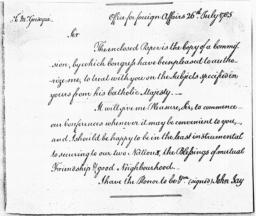 Office for foreign Affairs 26th July 1785
Sir
The inclosed Paper is the Copy of a Commis-
sion, by which Congress have been pleased to autho
rize me, to treat with you on the Subjects specified in
yours from his Catholic Majesty.
It will give me Pleasure, Sir, to commence
our Conferences whenever it may be convenient to you,
and I should be happy to be in the least instrumental
to securing to our two Nations, the Blessings of mutual
Friendship & good Neighbourhood.
I have the Honor to be &c. (signed) John Jay